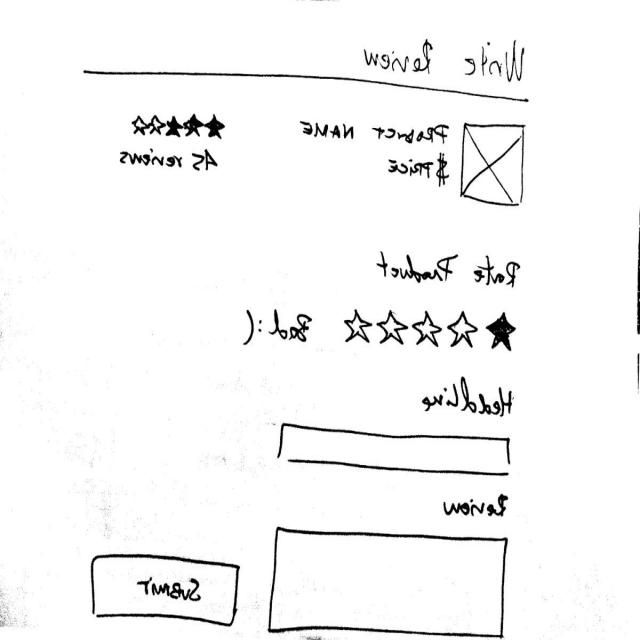 Write Review
PRODUCT NAME
$PRICE
★★★☆☆
45 reviews
Rate Product
★☆☆☆☆ Bad :(
Headline
Review
SUBMIT